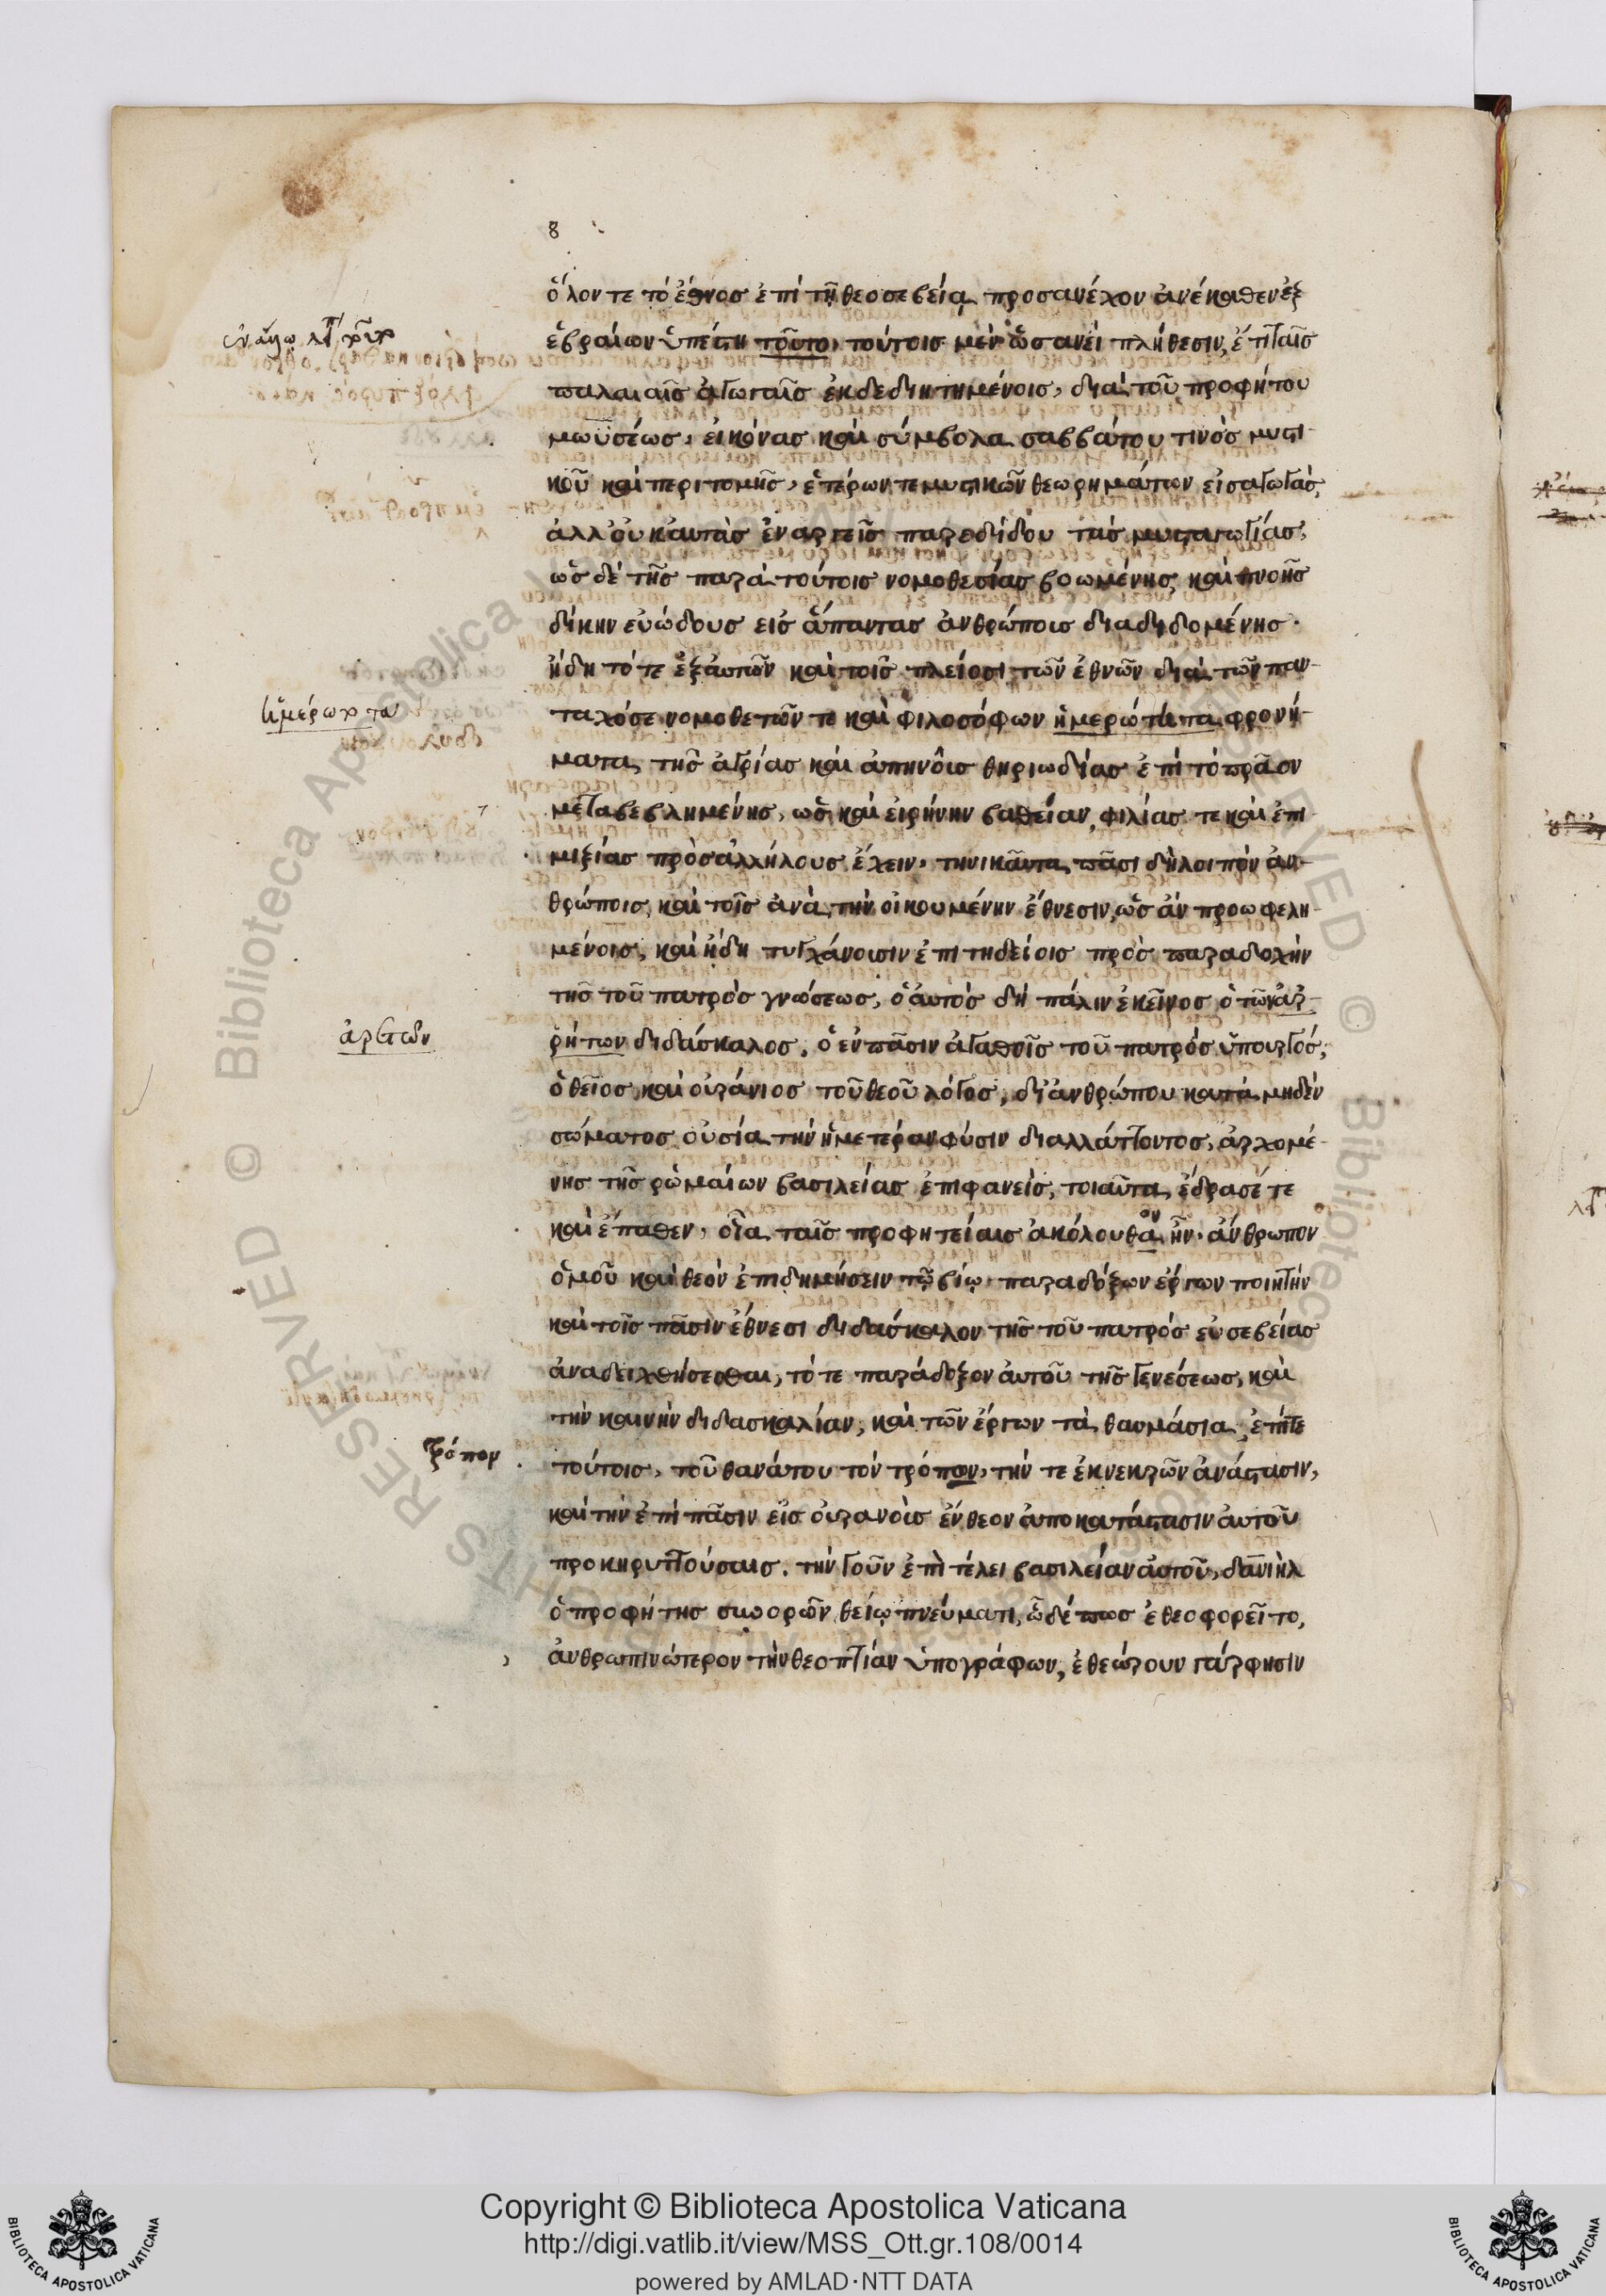 8
ὅλον τε τὸ ἔθνος ἐπὶ τῇ θεοσεβείᾳ προσανέχον ἀνέκαθεν ἐξ
ἑβραίων ὑπέστη τοῦτο, τούτοις μὲν ὡσανεὶ πλήθεσιν, ἔτι ταῖς
παλαιαῖς ἀγωγαῖς ἐκδεδιητημένοις, διὰ τοῦ προφήτου
μωϋσέως, εἰκόνας καὶ σύμβολα σαββάτου τινὸς μυστι-
κοῦ καὶ περιτομῆς, ἑτέρων τε μυστικῶν θεωρημάτων εἰσαγωγὰς,
ἀλλ' οὐκ αὐτὰς ἐναργεῖς παρεδίδου τὰς μυσταγωγίας,
ὡς δὲ τῆς παρὰ τούτοις νομοθεσίας βοωμένης, καὶ πνοῆς
δίκην εὐώδους εἰς ἅπαντας ἀνθρώποις διαδιδομένης.
ἤδη τότε ἐξ αὐτῶν καὶ τοῖς πλείοσι τῶν ἐθνῶν διὰ τῶν παν-
ταχόσε νομοθετῶν τε καὶ φιλοσόφων ἡμερώτητα φρονή-
ματα, τῆς ἀγρίας καὶ ἀπηνοῦς θηριωδίας ἐπὶ τὸ πρᾶον
μεταβεβλημένης, ὡς καὶ εἰρήνην βαθεῖαν, φιλίας τε καὶ ἐπι
μιξίας πρὸς ἀλλήλους ἔχειν. τηνικαῦτα πᾶσι δὴ λοιπὸν ἀν-
θρώποις, καὶ τοῖς ἀνὰ τὴν οἰκουμένην ἔθνεσιν, ὡς ἂν προωφελη-
μένοις, καὶ ἤδη τυγχάνουσιν ἐπιτηδείοις πρὸς παραδοχὴν
τῆς τοῦ πατρὸς γνώσεως, ὁ αὐτὸς δὴ πάλιν ἐκεῖνος ὁ τῶν ἀρ-
ρήτων διδάσκαλος, ὁ ἐν πᾶσιν ἀγαθοῖς τοῦ πατρὸς ὑπουργός,
ὁ θεῖος καὶ οὐράνιος τοῦ θεοῦ λόγος, δι' ἀνθρώπου κατὰ μηδὲν
σώματος οὐσίᾳ τὴν ἡμετέραν φύσιν διαλλάττοντος, ἀρχομέ-
νης τῆς ῥωμαίων βασιλείας ἐπιφανεὶς, τοιαῦτα ἔδρασέ τε
καὶ ἔπαθεν, οἷα ταῖς προφητείαις ἀκόλουθα ἦν. ἄνθρωπον
ὁμοῦ καὶ θεὸν ἐπιδημήσειν τῷ βίῳ, παραδόξων ἔργων ποιητὴν
καὶ τοῖς πᾶσιν ἔθνεσι διδάσκαλον τῆς τοῦ πατρὸς εὐσεβείας
ἀναδειχθήσεσθαι, τό τε παράδοξον αὐτοῦ τῆς γενέσεως, καὶ
τὴν καινὴν διδασκαλίαν, καὶ τῶν ἔργων τὰ θαυμάσια, ἐπί τε
τούτοις, τοῦ θανάτου τὸν τρόπον, τήν τε ἐκ νεκρῶν ἀνάστασιν,
καὶ τὴν ἐπὶ πᾶσιν εἰς οὐρανοὺς ἔνθεον ἀποκατάστασιν αὐτοῦ
προκηρυττούσαις. τὴν γοῦν ἐπὶ τέλει βασιλείαν αὐτοῦ, δανιὴλ
ὁ προφήτης συνορῶν θείῳ πνεύματι, ὧδέ πως ἐθεοφορεῖτο,
ἀνθρωπινώτερον τὴν θεοπτίαν ὑπογράφων, ἐθεώρουν γάρ φησιν
ἀρετῶν
τρόπον
Copyright © Biblioteca Apostolica Vaticana
http://digi.vatlib.it/view/MSS_Ott.gr.108/0014
powered by AMLAD·NTT DATA
BIBLIOTECA APOSTOLICA VATICANA
BIBLIOTECA APOSTOLICA VATICANA